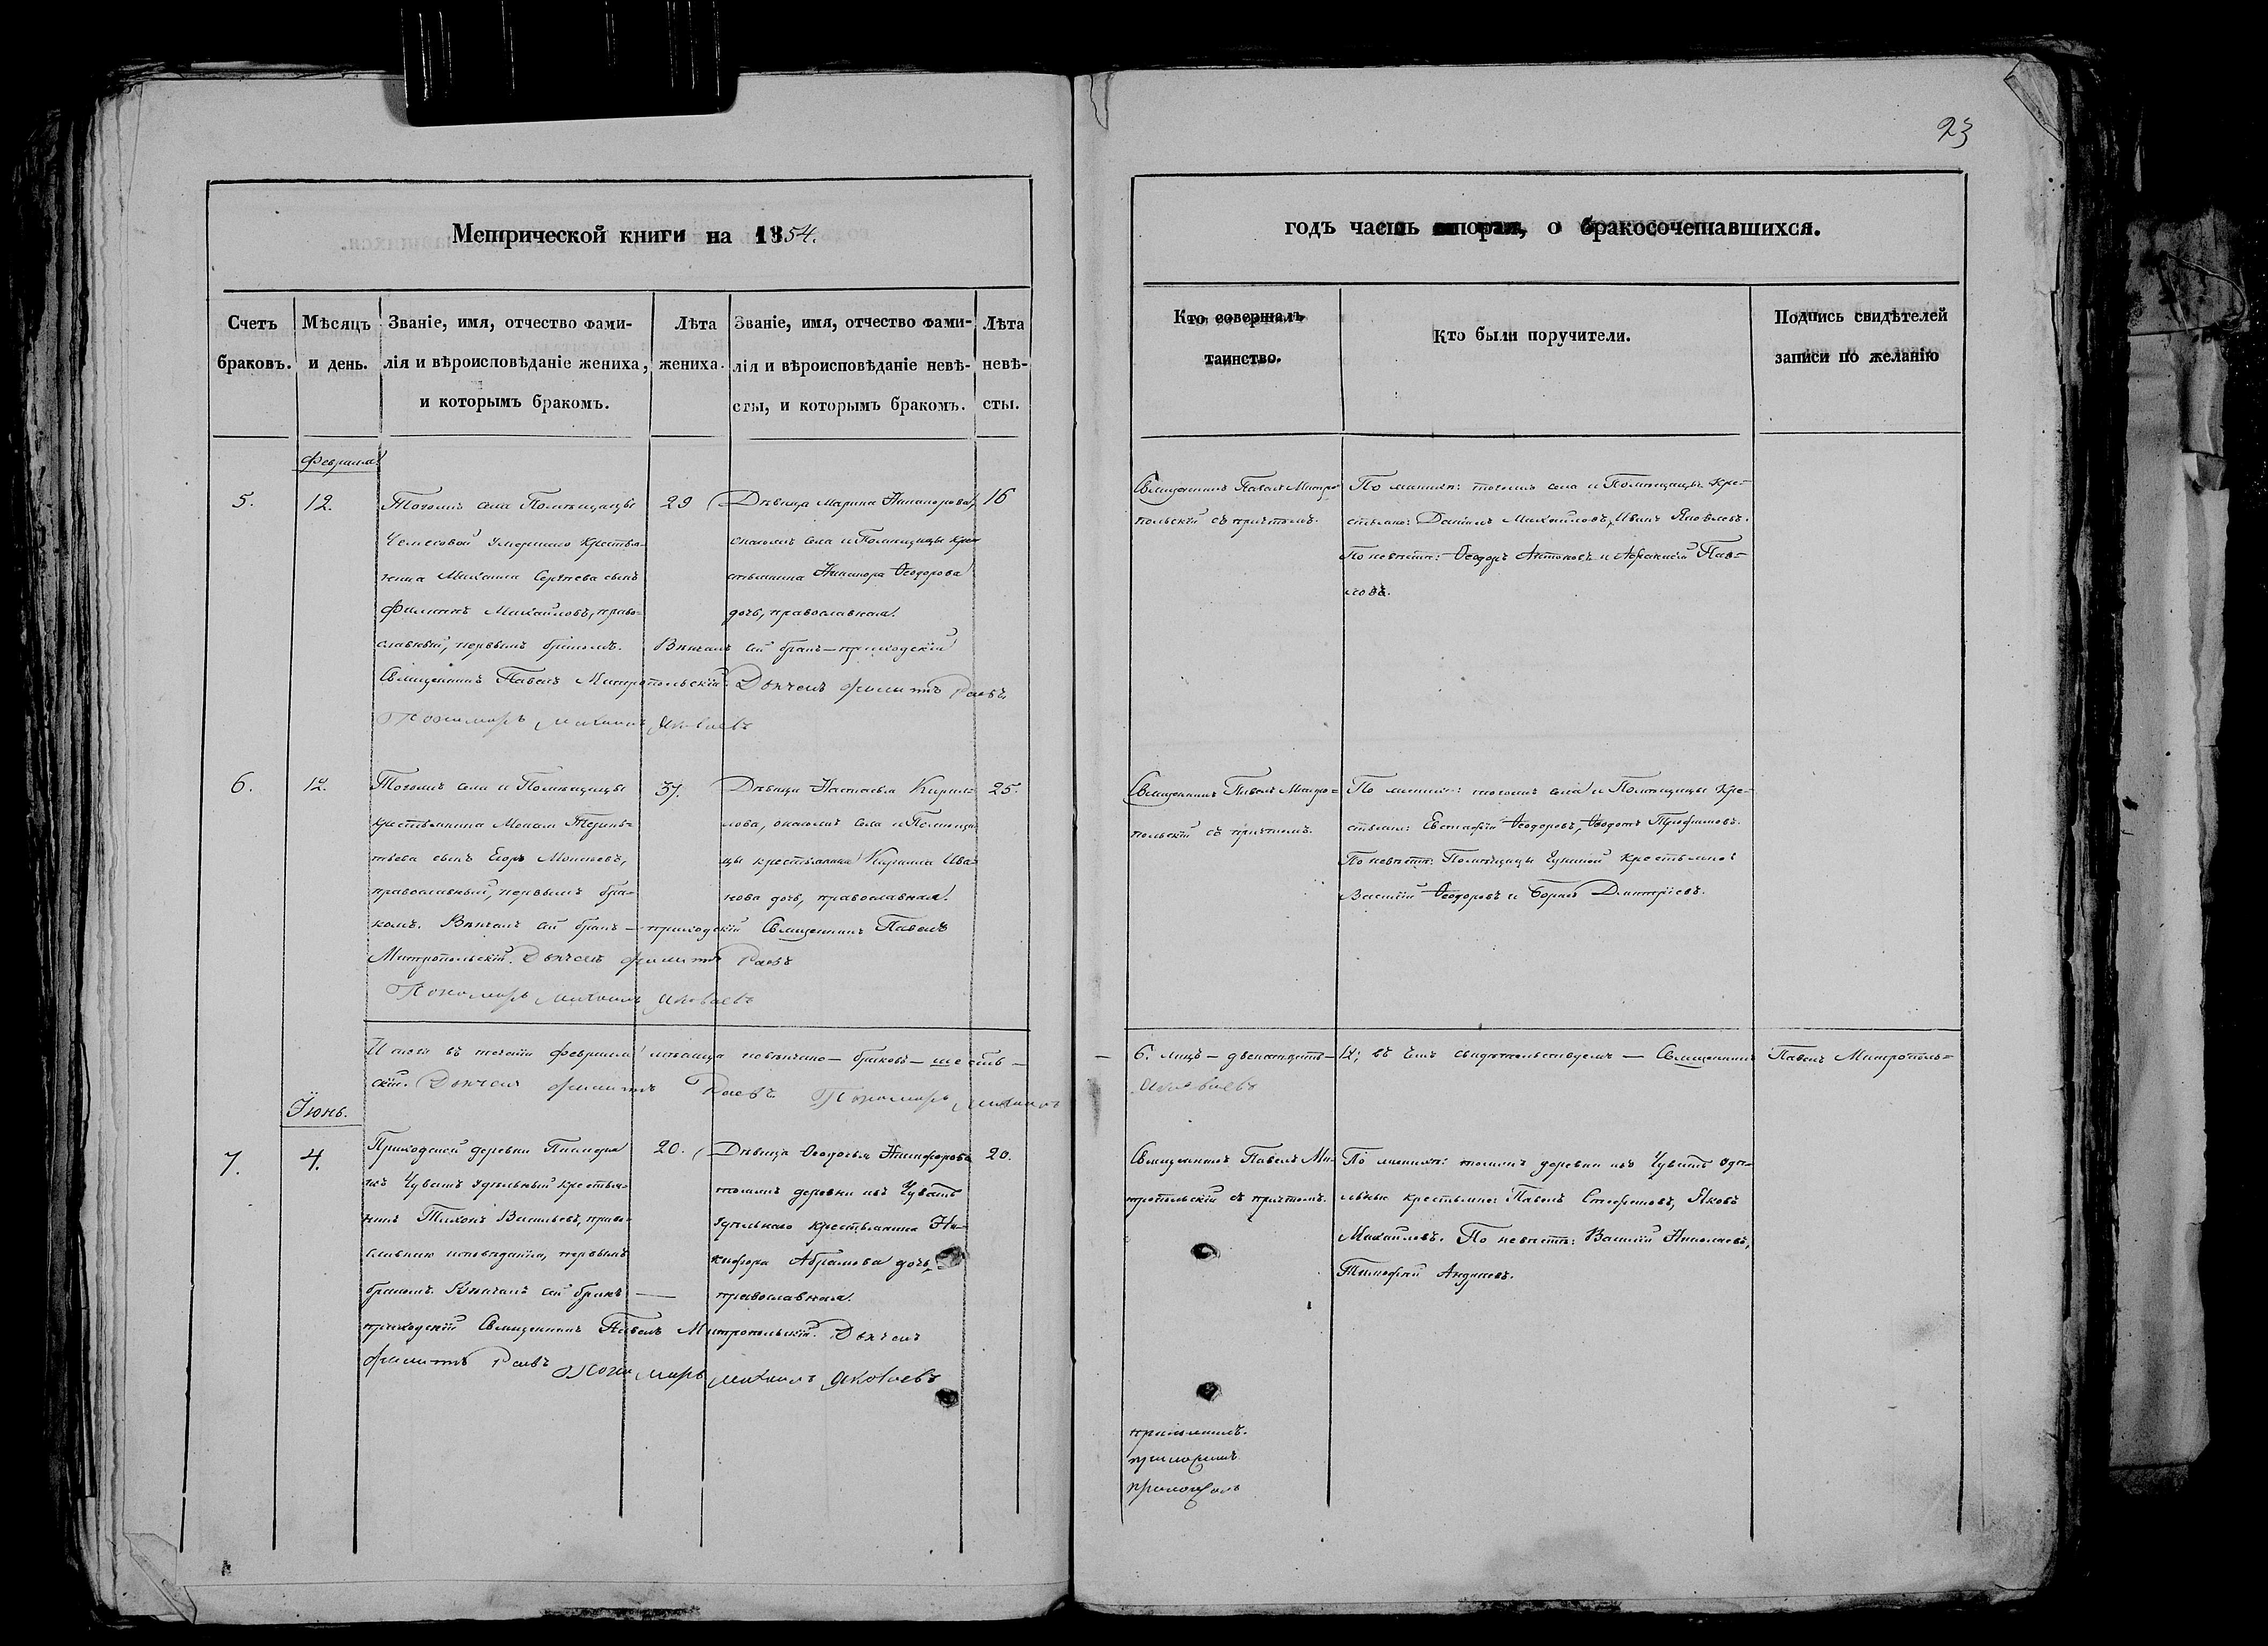 23
Метрической книги на 1854.
годъ часть вторая, о бракосочетавшихся.
Счетъ браковъ.
Мѣсяцъ и день.
Званіе, имя, отчество фами-
лія и вѣроисповѣданіе жениха,
и которымъ бракомъ.
Лѣта
жениха.
Званіе, имя, отчество фами-
лія и вѣроисповѣданіе невѣ-
сты, и которымъ бракомъ.
Лѣта
невѣ-
сты.
Кто совершалъ
таинство.
Кто были поручители.
Подпись свидѣтелей
записи по желанію
Февраля
5.
12.
Тогожъ села Помѣщицы
умершаго крестья-
нина Михаила Сергѣева сынъ
Филиппъ Михайловъ, право-
славный, первымъ бракомъ.
29
Дѣвица Марина Никанорова,
онагожъ села и Помѣщицы кре-
стьянина Никанора Ѳеодорова
дочь, православная.
16
Вѣнчалъ сей бракъ - приходскій
Священникъ Павелъ Митропольскій. Дьячекъ Филиппъ Раевъ
Пономарь Михаилъ Яковлевъ
Священникъ Павелъ Митро-
польскій съ причтомъ.
По женихѣ: тогожъ села и Помѣщицы кре-
стьяне: Даніилъ Михайловъ, Иванъ Яковлевъ.
По невѣстѣ: Ѳеодоръ Антоновъ и Афанасій Пав-
ловъ.
6.
12.
Тогожъ села и Помѣщицы
крестьянина Моисея Терень-
тьева сынъ Егоръ Моисеевъ,
православный, первымъ бра-
комъ. Вѣнчалъ сей бракъ - приходскій Священникъ Павелъ
Митропольскій. Дьячекъ Филиппъ Раевъ
Пономарь Михаилъ Яковлевъ
37.
Дѣвица Настасья Кирил-
лова, онагожъ села и Помѣщи-
цы крестьянина Кирилла Ива-
нова дочь, православная.
25.
Священникъ Павелъ Митро-
польскій съ причтомъ.
По женихѣ: тогожъ села и Помѣщицы кре-
стьяне: Евстафій Ѳеодоровъ, Ѳеодотъ Трофимовъ.
По невѣстѣ: Помѣщицы крестьяне:
Василій Ѳеодоровъ и Борисъ Димитріевъ.
Итого въ теченіи Февраля мѣсяца повѣнчано - браковъ - шесть - 6. лицъ - двенатцать - 12; въ чемъ свидѣтельствуемъ - Священникъ Павелъ Митрополь-
скій. Дьячекъ Филиппъ Раевъ. Пономарь Михаилъ Яковлевъ
Іюнь.
7.
4.
Приходской деревни
изъ Чувашъ удѣльный крестья-
нинъ Тихонъ Васильевъ, право-
славнаго исповѣданія, первымъ
бракомъ. Вѣнчалъ сей бракъ -
приходскій Священникъ Павелъ Митропольскій. Дьячекъ
Филиппъ Раевъ Пономарь Михаилъ Яковлевъ
20.
Дѣвица Ѳеодосья Никифорова
тояжъ деревни изъ Чувашъ
удѣльнаго крестьянина Ни-
кифора Абрамова дочь,
православная.
20.
Священникъ Павелъ Ми-
тропольскій съ причтомъ.
По женихѣ: тоежъ деревни изъ Чувашъ удѣ-
льные крестьяне: Павелъ Стефановъ, Яковъ
Михайловъ. По невѣстѣ: Василій Николаевъ,
Тимофей Андреевъ.